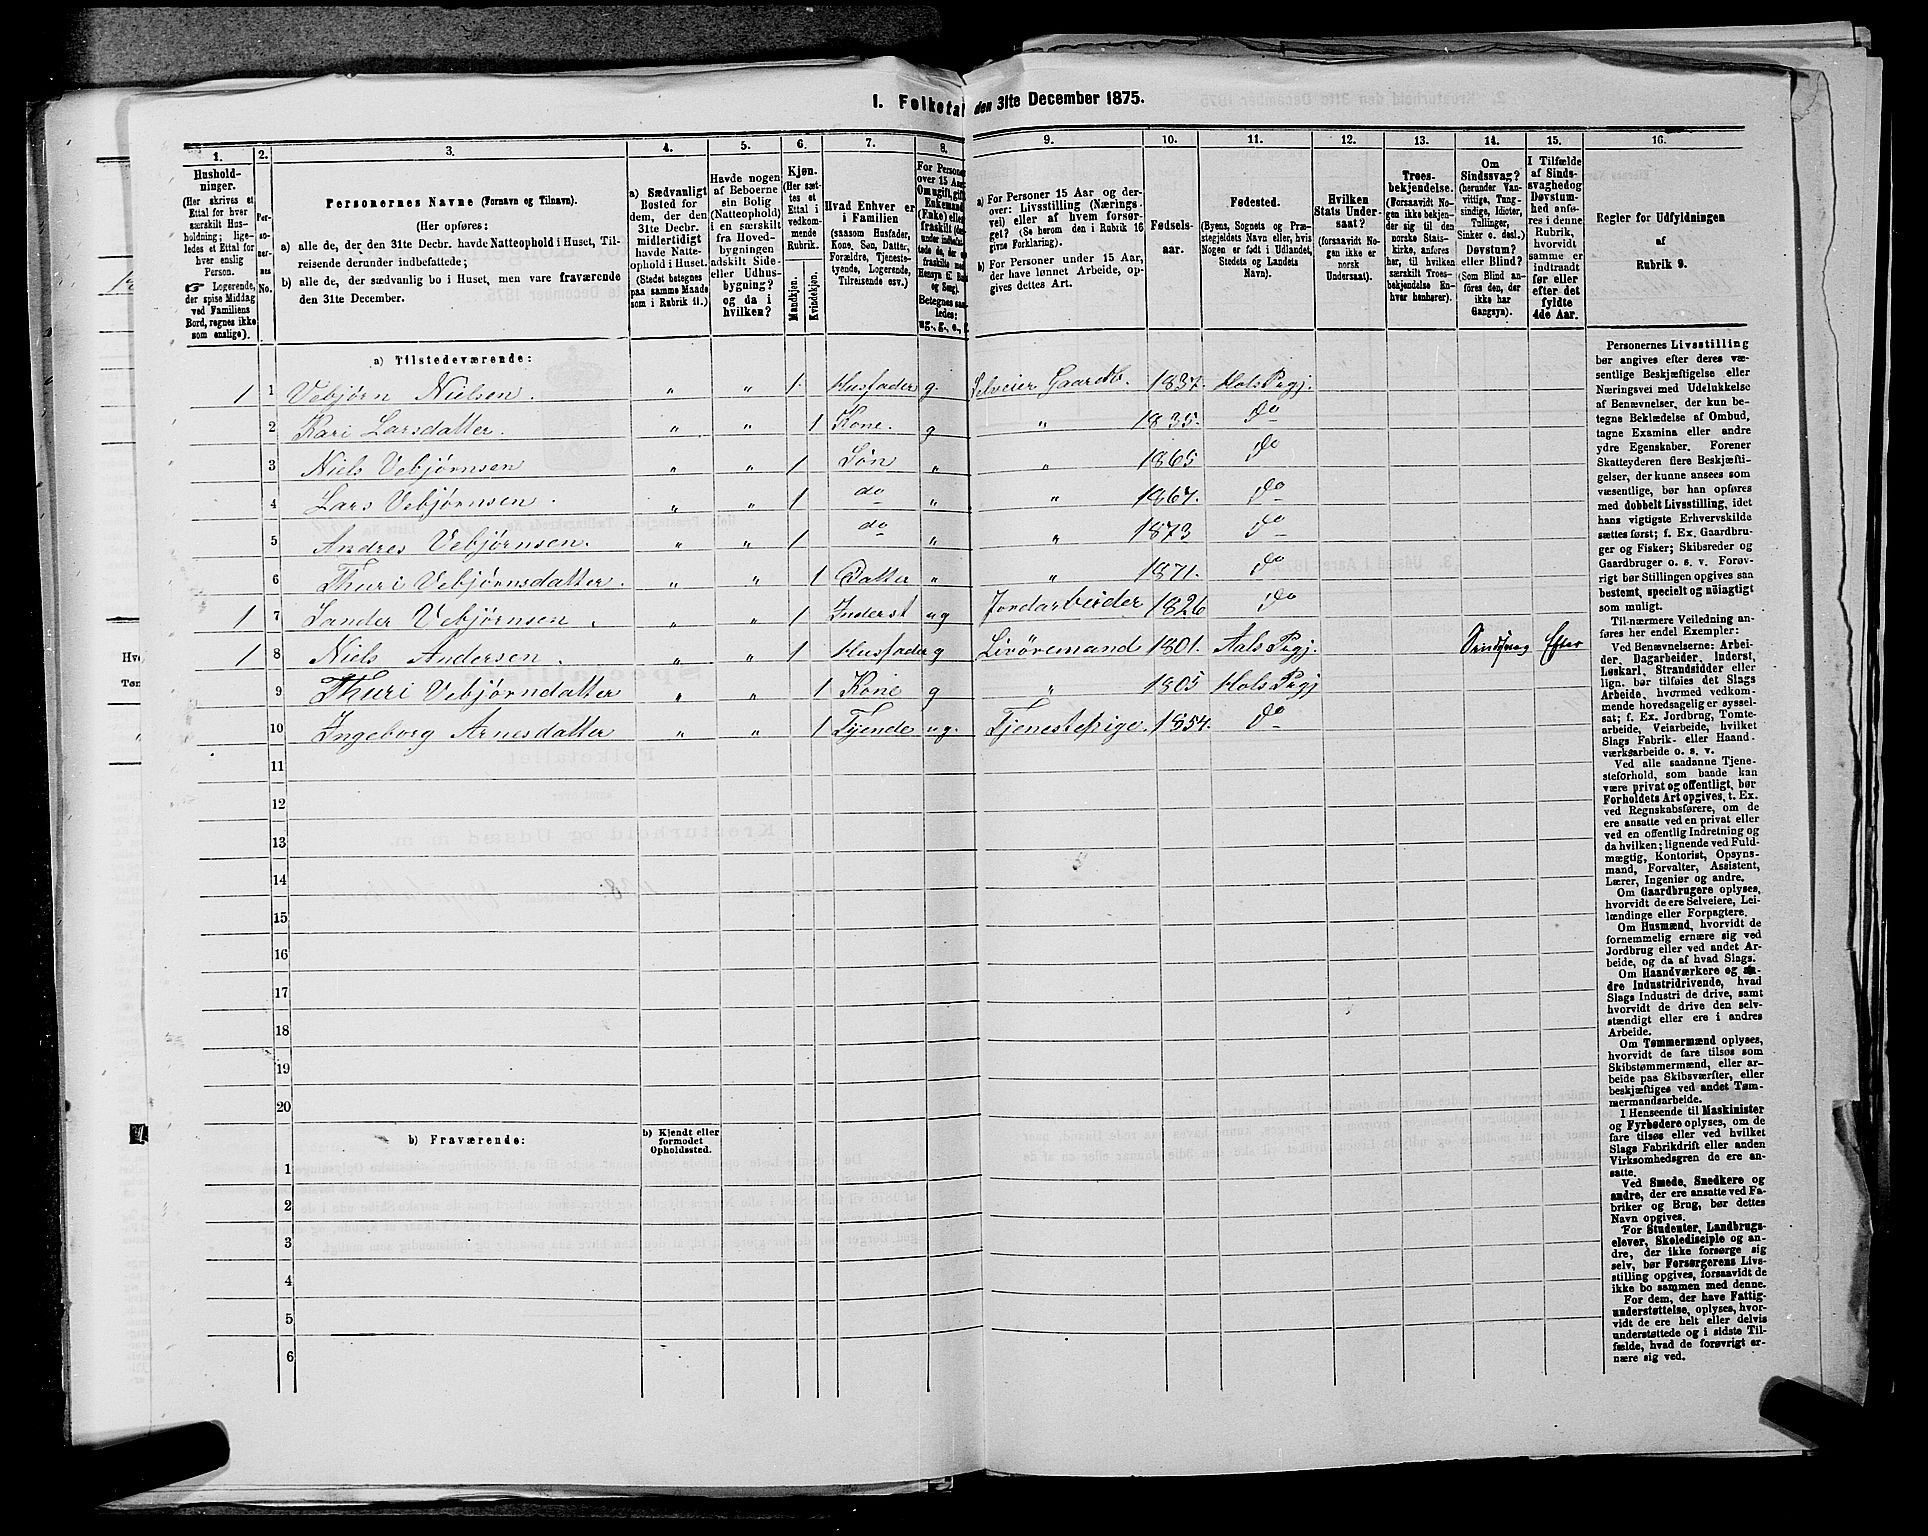 I. Folketal den 31te December 1875.
1. 2. 3. 4. 5. 6. 7. 8. 9. 10. 11. 12. 13. 14. 15. 16.
Husholdninger.
(Her skrives et
Ettal for hver
særskilt Husholdning;
ligeledes et Ettal for
hver enslig
Person.
☞ Logerende,
der spise Middag
ved Familiens
Bord, regnes ikke
som enslige).
Personernes No.
Personernes Navne (Fornavn og Tilnavn).
(Her opføres:
a) alle de, der den 31te Decbr. havde Natteophold i Huset, Tilreisende derunder indbefattede;
b) alle de, der sædvanlig bo i Huset, men vare fraværende
den 31te December.
a) Sædvanligt
Bosted for
dem, der den
31te Decbr.
midlertidigt
havde Natteophold i Huset.
(Stedet betegnes
paa samme Maade
som i Rubrik 11.)
Havde nogen
af Beboerne
sin Bolig
(Natteophold)
i en særskilt
fra Hovedbygningen
adskilt Side- eller Udhusbygning?
og da i
hvilken?
Kjøn.
(Her sættes et
Ettal i
vedkommende
Rubrik.
Mandkjøn.
Kvindekjøn.
Hvad Enhver er
i Familien
(saasom Husfader,
Kone, Søn, Datter,
Forældre, Tjenestetyende, Logerende,
Tilreisende osv.)
a) For Personer 15 Aar og derover: Livsstilling (Næringsvei) eller af hvem forsørget? (Se herom den i Rubrik 16
givne Forklaring).
b) For Personer under 15 Aar,
der have lønnet Arbeide, opgives dettes Art.
Fødselsaar.
Fødested.
(Byens, Sognets og Præstegjeldets Navn eller, hvis
Nogen er født i Udlandet,
Stedets og Landets
Navn).
Hvilken
Stats Undersaat?
(forsaavidt Nogen ikke er
norsk
Undersaat).
Troesbekjendelse.
(Forsaavidt Nogen ikke bekjender sig til den
norske Statskirke, anføres
her, til hvilken
særskilt Troesbekjendelse Enhver henhører).
Om
Sindssvag?
(herunder Vanvittige, Tungsindige, Idioter,
Tullinger,
Sinker o. desl.)
Døvstum?
eller Blind?
(Som Blind anføres den, der
ikke har
Gangsyn).
I Tilfælde
af Sindssvaghed og
Døvstumhed
anføres i denne
Rubrik,
hvorvidt
samme er
indtraadt
før eller
efter det
fyldte
4de Aar.
Regler for Udfyldningen
af
Rubrik 9.
a) Tilstedeværende:
1 1 Vebjørn Nielsen. „ „ 1 Husfader g Selveier Gaardb. 1837. Hols Prgj.
2 Kari Larsdatter. „ „ 1 Kone. g „ 1835. Do
3 Niels Vebjørnsen „ „ 1 Søn „ „ 1865 Do
4 Lars Vebjørnsen. „ „ 1 do „ „ 1867. Do
5 Andres Vebjørnsen. „ „ 1 do „ „ 1873 Do
6 Thuri Vebjørnsdatter. „ „ 1 Datter „ „ 1871. Do
1 7 Sander Vebjørnsen. „ „ 1 Inderst ug Jordarbeider 1826 Do
1 8 Niels Andersen. „ „ 1 Husfader g Livøremand 1801. Aals Prgj. Sindsvag Efter
9 Thuri Vebjørndatter „ „ 1 Kone g „ 1805 Hols Prgj
10 Ingeborg Arnesdatter „ „ 1 Tyende ug. Tjenestepige. 1854. Do
11
12
13
14
15
16
17
18
19
20
b) Fraværende:
b) Kjendt eller
formodet
Opholdssted.
1
2
3
4
5
6
Personernes Livsstilling
bør angives efter deres væsentlige Beskjæftigelse eller
Næringsvei med Udelukkelse
af Benævnelser, der kun betegne Beklædelse af Ombud,
tagne Examina eller andre
ydre Egenskaber. Forener
Skatteyderen flere Beskjæftigelser, der kunne ansees som
væsentlige, bør han opføres
med dobbelt Livsstilling, idet
hans vigtigste Erhvervskilde
sættes først; f. Ex. Gaardbruger og Fisker; Skibsreder og
Gaardbruger o. s. v. Forøvrigt bør Stillingen opgives saa
bestemt, specielt og nöiagtigt
som muligt.
Til nærmere Veiledning anføres her endel Exempler:
Ved Benævnelserne: Arbeider, Dagarbeider, Inderst,
Løskarl, Strandsidder eller
lign. bør tilføies det Slags
Arbeide, hvormed vedkommende hovedsagelig er sysselsat; f. Ex. Jordbrug, Tomtearbeide, Veiarbeide, hvilket
Slags Fabrik- eller Haandværksarbeide o. s. v.
Ved alle saadanne Tjenesteforhold, som baade kan
være privat og offentligt, bør
Forholdets Art opgives, t. Ex.
ved Regnskabsførere, om de
ere ansatte ved en privat eller
ved en offentlig Indretning og
da hvilken; lignende ved Fuldmægtig, Kontorist, Opsynsmand, Forvalter, Assistent,
Lærer, Ingeniør og andre.
Om Gaardbrugere oplyses,
hvorvidt de ere Selveiere, Leilændinge eller Forpagtere.
Om Husmænd, hvorvidt de
fornemmelig ernære sig ved
Jordbrug eller ved andet Arbeide, og da af hvad Slags.
Om Haandværkere og andre Industridrivende, hvad
Slags Industri de drive, samt
hvorvidt de drive den selvstændigt eller ere i andres
Arbeide.
Om Tømmermænd oplyses,
hvorvidt de fare tilsøs som
Skibstømmermænd, eller arbeide paa Skibsværfter, eller
beskjæftiges ved andet Tømmermandsarbeide.
I Henseende til Maskinister
og Fyrbødere oplyses, om de
fare tilsøs eller ved hvilket
Slags Fabrikdrift eller anden
Virksomhedsgren de ere ansatte.
Ved Smede, Snedkere og
andre, der ere ansatte ved Fabriker og Brug, bør dettes
Navn opgives.
For Studenter, Landbrugselever, Skoledisciple og andre, der ikke forsørge sig
selv, bør Forsørgerens Livsstilling opgives, forsaavidt de
ikke bo sammen med denne.
For dem, der have Fattigunderstøttelse, oplyses, hvorvidt de ere helt eller delvis
understøttede og i sidste Tilfælde, hvad de forøvrigt ernære sig ved.